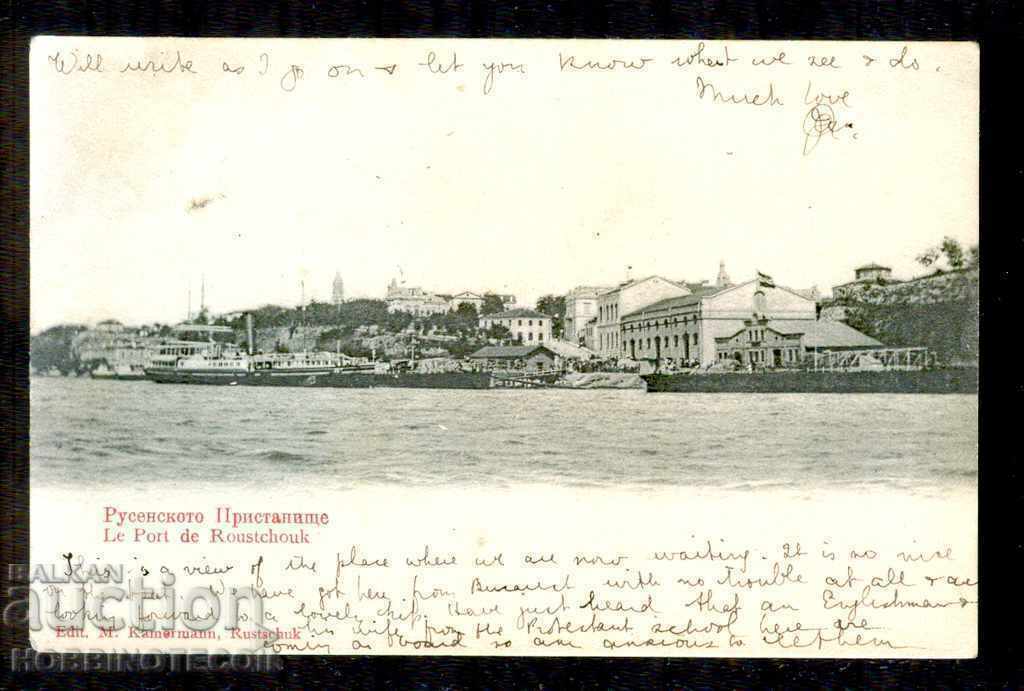 Will write as I go on & let you know what we see & do.
Much love
Русенското Пристанище
Le Port de Roustchouk
This is a view of the place where we are now waiting. It is so nice
on the We have got here from Bucarest with no trouble at all & are
looking forward to a lovely trip. Have just heard that an Englishman &
his wife from the Protestant school here are
coming as board so am anxious to
Edit. M. Kamermann, Rustschuk
BALKAN
auction
HOBBINOTECO